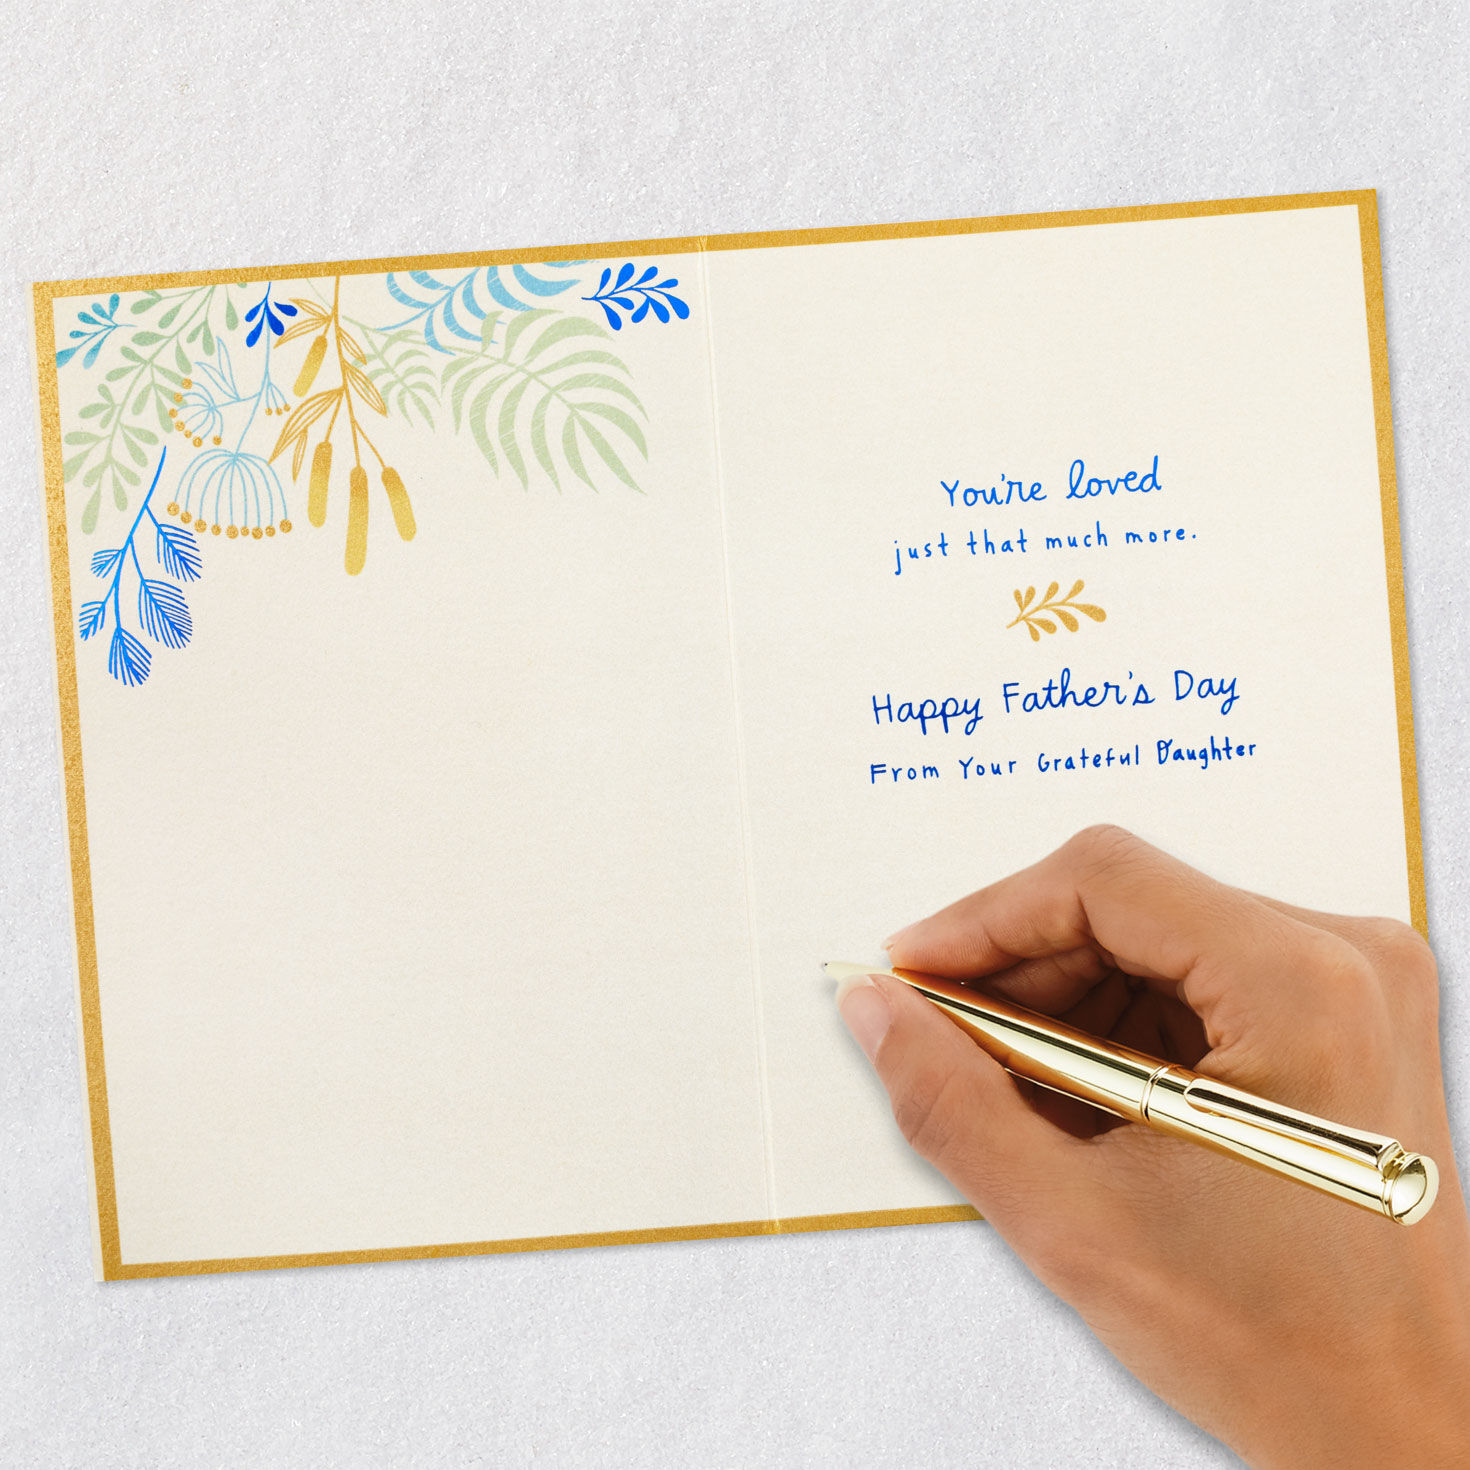 You're loved
just that much more.
Happy Father's Day
From Your Grateful Daughter